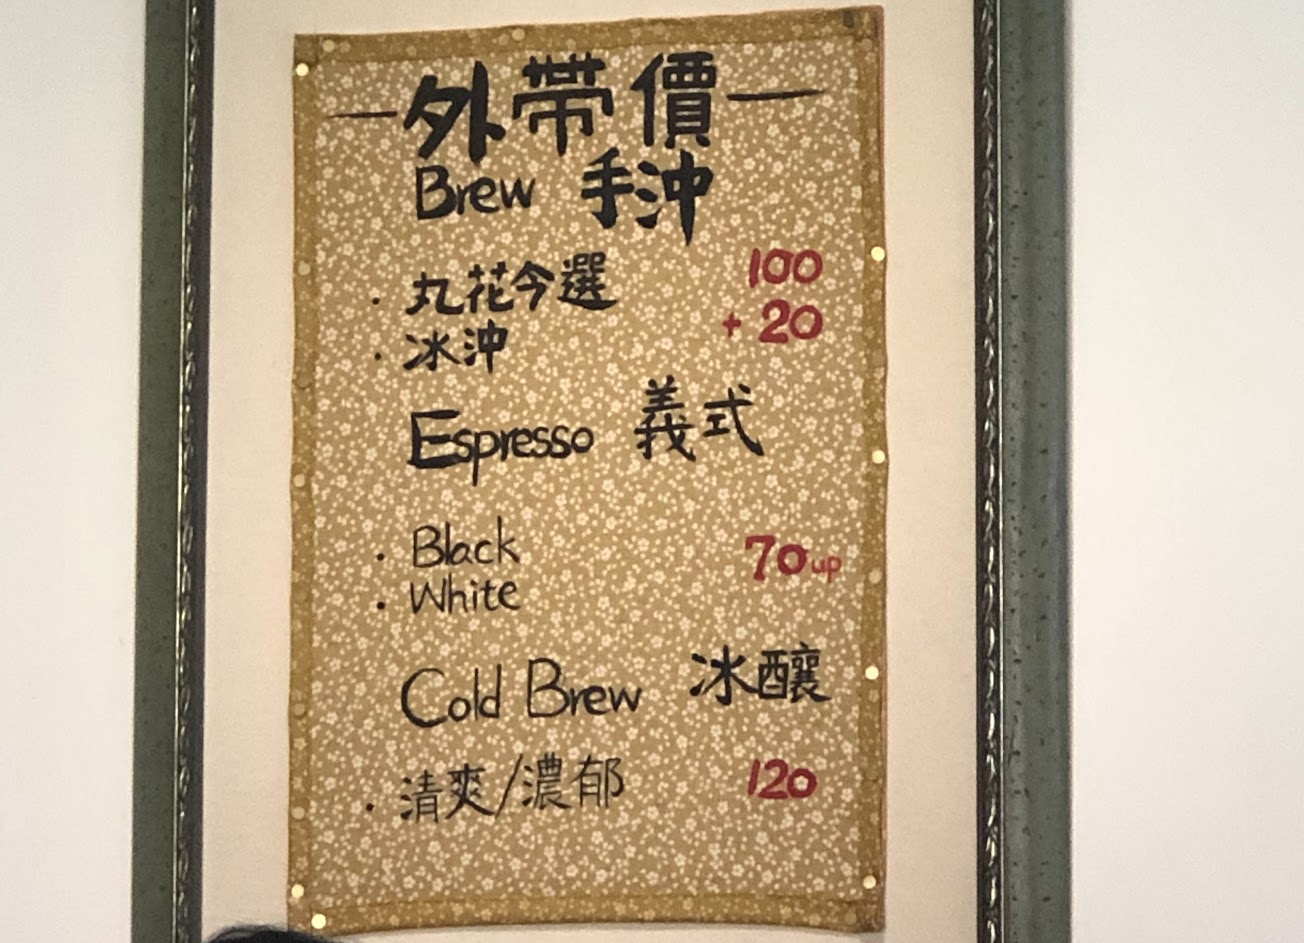 外帶價
Brew 手沖
· 丸花今選 100
· 冰沖 + 20
Espresso 義式
· Black 70 up
· White
Cold Brew 冰釀
· 清爽/濃郁 120